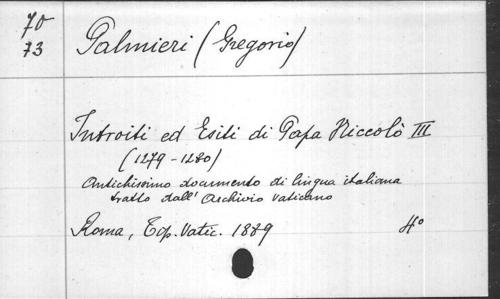 70
73
Palmieri (Gregorio)
Introiti ed Esiti di Papa Niccolò III
(1279-1280)
Antichissimo documento di lingua italiana
tratto dall' Archivio Vaticano
Roma, Tip. Vatic. 1889 4°